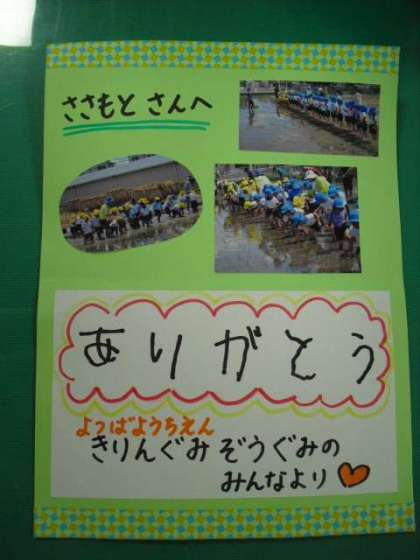 ささもと さんへ
ありがとう
よつばようちえん
きりんぐみ ぞうぐみの
みんなより